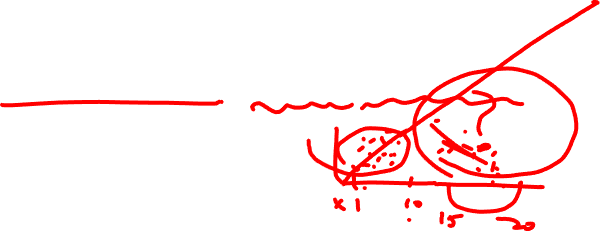 x 1 10 15 20